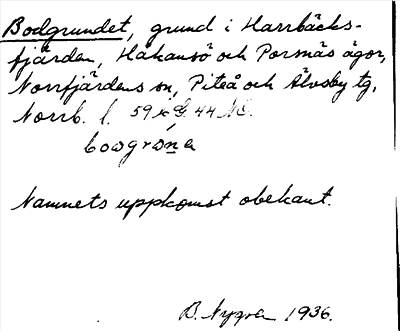 Bodgrundet, grund i Harrbäcks-
fjärden, Håkansö och Porsnäs ägor,
Norrfjärdens sn, Piteå och Älvsby tg,
Norrb. l. 59 44
Namnets uppkomst obekant.
B. Nygren 1936.